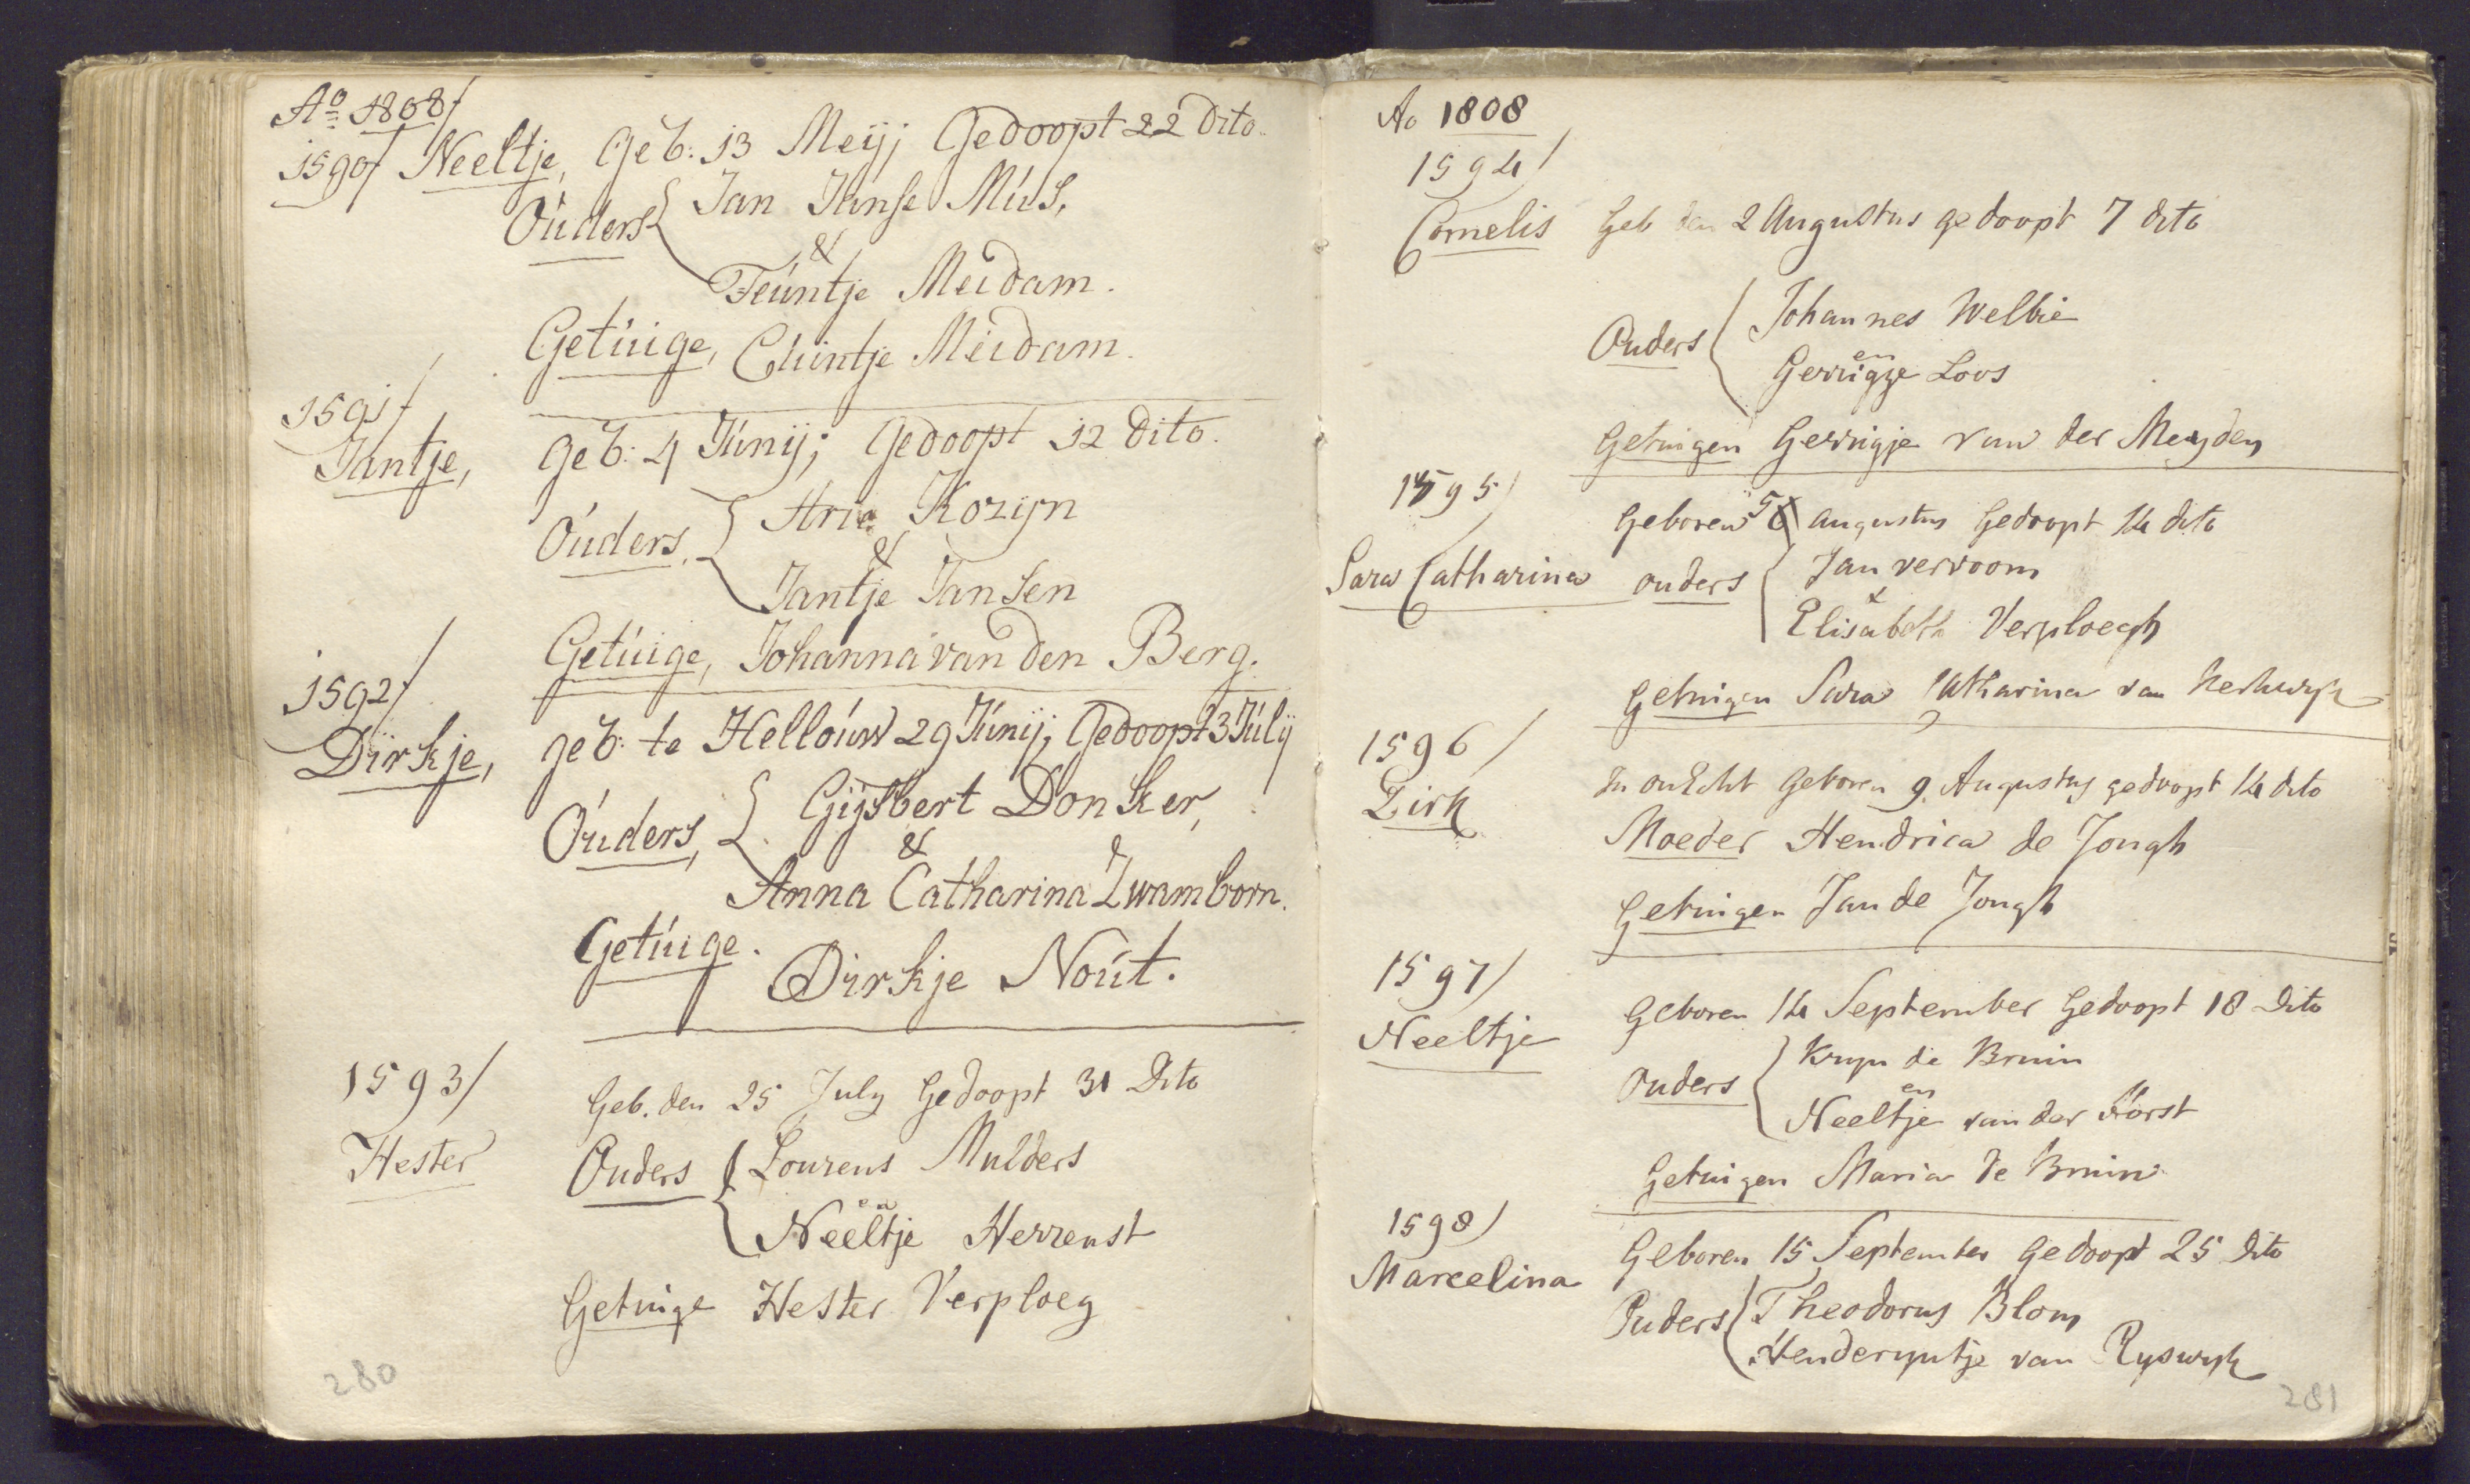 Ao 1808/
1590/ Neeltje, Geb: 13 Meij; Gedoopt 22 Dito.
Ouders { Jan Janse Mus,
&
Teuntje Meidam.
Getuige, Chintje Meidam.
1591/
Jantje, geb: 4 Junij; Gedoopt 12 Dito.
Ouders, { Arie Kozijn
&
Jantje Jansen
Getuige, Johanna van den Berg.
1592/
Dirkje, geb: te Hellouw 29 Junij; Gedoopt 3 Julij
Ouders, { Gijsbert Donker,
&
Anna Catharina Zwamborn.
Getuige. Dirkje Nout.
1593/
Geb. den 25 July Gedoopt 31 Dito
Hester Ouders { Lourens Mulders
en
Neeltje Herrenst
Getuige Hester Verploeg
280
Ao 1808
1594/
Cornelis Geb den 2 Augustus gedoopt 7 dito
Ouders { Johannes Welbie
en
Gerrigje Loos
Getuigen Gerrigje van der Meyden
1595/
Geboren 5 Augustus Gedoopt 14 dito
Sara Catharina ouders { Jan vervoorn
&
Elisabeth Verploegh
Getuigen Sara Catharina van Herwyk
1596/
Dirk In onEcht Geboren 9 Augustus gedoopt 14 dito
Moeder Hendrica de Jongh
Getuigen Jan de Jongh
1597/
Neeltje Geboren 14 September Gedoopt 18 Dito
Ouders { Kryn de Bruin
en
Neeltje van der Horst
Getuigen Maria de Bruin
1598/
Marcelina Geboren 15 September Gedoopt 25 dito
Ouders { Theodorus Blom
Henderyntje van Ryswyk
281